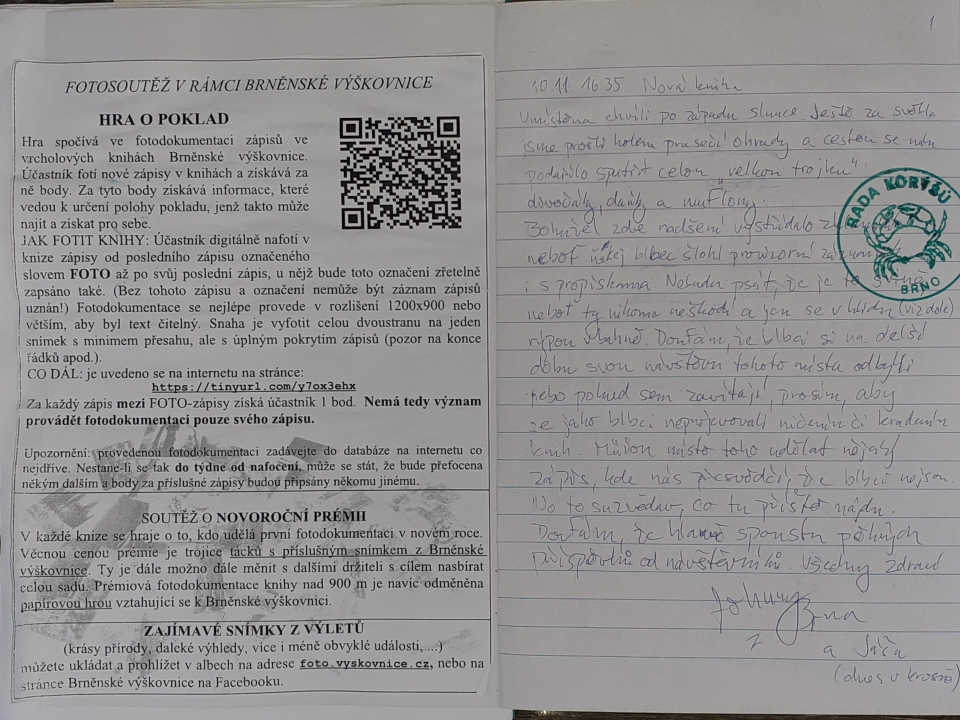 FOTOSOUTĚŽ V RÁMCI BRNĚNSKÉ VÝŠKOVNICE
HRA O POKLAD
Hra spočívá ve fotodokumentaci zápisů ve
vrcholových knihách Brněnské výškovnice.
Účastník fotí nové zápisy v knihách a získává za
ně body. Za tyto body získává informace, které
vedou k určení polohy pokladu, jenž takto může
najít a získat pro sebe.
JAK FOTIT KNIHY: Účastník digitálně nafotí v
knize zápisy od posledního zápisu označeného
slovem FOTO až po svůj poslední zápis, u nějž bude toto označení zřetelně
zapsáno také. (Bez tohoto zápisu a označení nemůže být záznam zápisů
uznán!) Fotodokumentace se nejlépe provede v rozlišení 1200x900 nebo
větším, aby byl text čitelný. Snaha je vyfotit celou dvoustranu na jeden
snímek s minimem přesahu, ale s úplným pokrytím zápisů (pozor na konce
řádků apod.).
CO DÁL: je uvedeno se na internetu na stránce:
https://tinyurl.com/y7ox3ehx
Za každý zápis mezi FOTO-zápisy získá účastník 1 bod. Nemá tedy význam
provádět fotodokumentaci pouze svého zápisu.
Upozornění: provedenou fotodokumentaci zadávejte do databáze na internetu co
nejdříve. Nestane-li se tak do týdne od nafocení, může se stát, že bude přefocena
někým dalším a body za příslušné zápisy budou připsány někomu jinému.
SOUTĚŽ O NOVOROČNÍ PRÉMII
V každé knize se hraje o to, kdo udělá první fotodokumentaci v novém roce.
Věcnou cenou prémie je trojice tácků s příslušným snímkem z Brněnské
výškovnice. Ty je dále možno dále měnit s dalšími držiteli s cílem nasbírat
celou sadu. Prémiová fotodokumentace knihy nad 900 m je navíc odměněna
papírovou hrou vztahující se k Brněnské výškovnici.
ZAJÍMAVÉ SNÍMKY Z VÝLETŮ
(krásy přírody, daleké výhledy, více i méně obvyklé události, ...)
můžete ukládat a prohlížet v albech na adrese foto.vyskovnice.cz, nebo na
stránce Brněnské výškovnice na Facebooku.
1
10.11. 1635 Nová kniha
Umístěna chvíli po západu slunce. Ještě za světla
jsme prošli kolem prasečí ohrady a cestou se nám
podařilo spatřit celou "velkou trojku"
divočáky, daňky a muflony.
Bohužel zde nadšení vystřídalo
neboť blbec šlohl provizorní
i s propiskama. Nebudu psát, že je to
neboť ty nikomu neškodí a jen se v klidu (viz dole)
rypou v bahně. Doufám, že blbci si na delší
dobu svou návštěvu tohoto místa odbyli
nebo pokud sem zavítají, prosím, aby
se jako blbci neprojevovali ničením či kradením
knih. Můžou místo toho udělat nějaký
zápis, kde nás přesvědčí, že blbci nejsou.
No to su zvědav, co tu příště najdu.
Doufám, že hlavně spoustu pěkných
příspěvků od návštěvníků. Všechny zdraví
z Brna
a
(dnes v krosně)
RADA KORÝŠŮ
BRNO